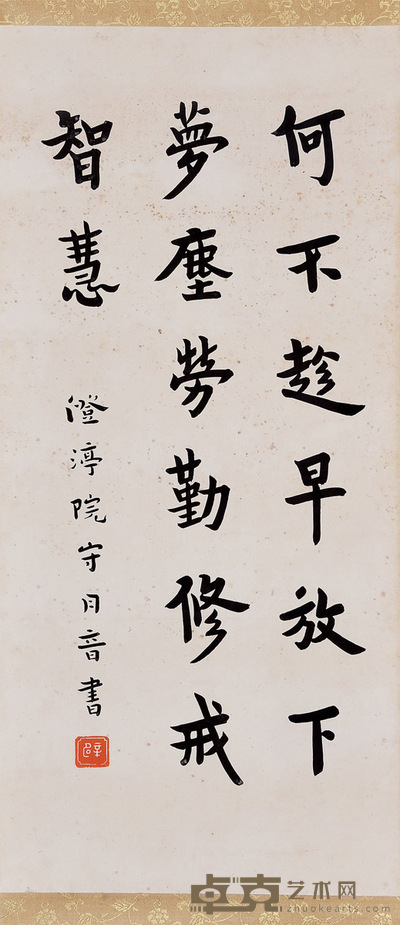 何不趁早放下
夢塵勞勤修戒
智慧
澄渟院守月音書
卓克艺术网
zhuokearts.com